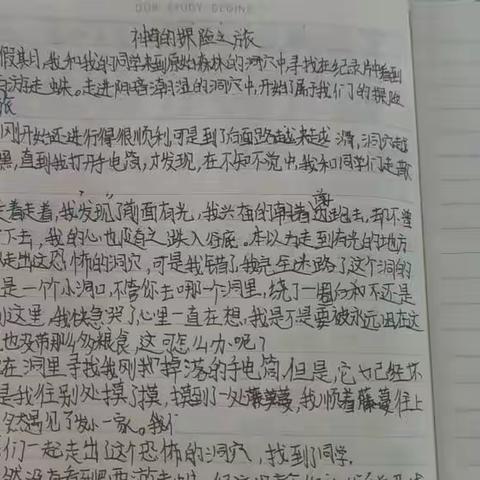 OUR STUDY BEGINS
神奇的探险之旅
假期日,我和我的同学来到原始森林的洞穴中寻找在纪录片中看到
游走蛛。走进阴暗潮湿的洞穴中,开始了属于我们的探险
旅
刚开始还进行得很顺利,可是到了后面路越来越滑,洞穴越
黑,直到我打开手电筒,才发现,在不知不觉中,我和同学们走散
走着走着,我发现了前面有光,我兴奋的朝着跑去,却不
了下去,我的心也随之跌入谷底。本以为走到有光的地方
走出这恐怖的洞穴,可是我错了,我完全迷路了这个洞的
是一个小洞口,不管你去哪一个洞里,绕了一圈和不还是
这里,我快急哭了心里一直在想,我是不是要被永远在这
也没带那么多粮食,这可怎么办呢?
在洞里寻找我刚刚掉落的手电筒,但是,它已经坏
是我往别处摸了摸,摸到了一处藤蔓,我顺着藤蔓往上
然遇见了发小一家。我们
们一起走出了这个恐怖的洞穴,找到了同学。
然没有看到